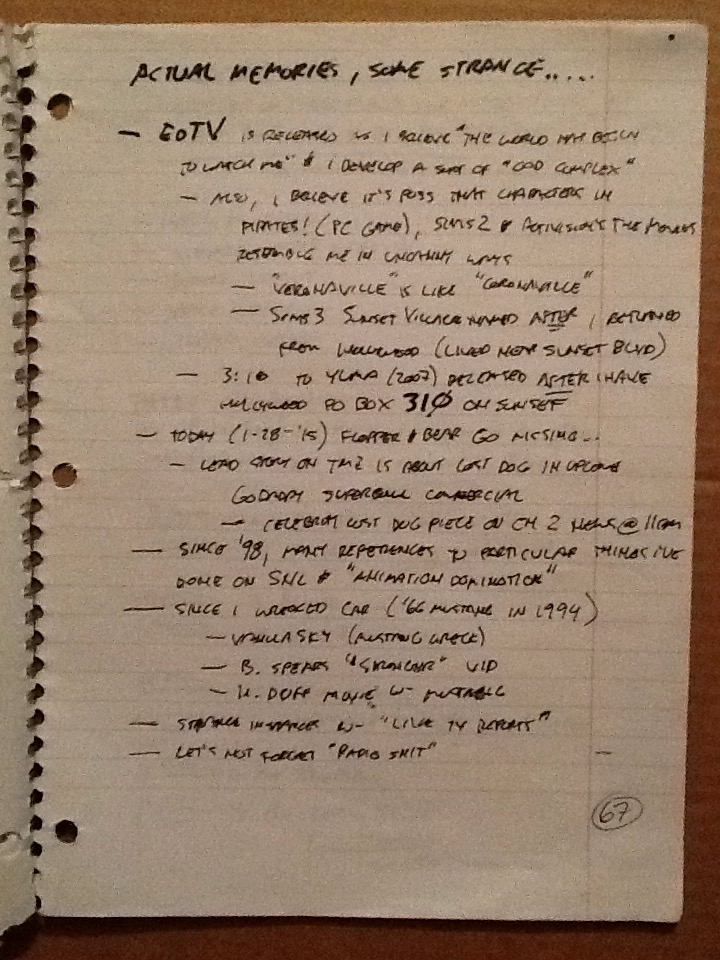 ACTUAL MEMORIES, SOME STRANGE.....
— EDTV IS RELEASED & I BELIEVE "THE WORLD HAS BEGUN
TO WATCH ME" & I DEVELOP A SORT OF "GOD COMPLEX"
— ALSO, I BELIEVE IT'S POSS THAT CHARACTERS IN
PIRATES! (PC GAME), SIMS 2 & ACTIVISION'S THE MOVIES
RESEMBLE ME IN UNCANNY WAYS
— "VERONAVILLE" IS LIKE "CORONAVILLE"
— SIMS 3 SUNSET VILLAGE NAMED AFTER I RETURNED
FROM HOLLYWOOD (LIVED NEAR SUNSET BLVD)
— 3:10 TO YUMA (2007) RELEASED AFTER I HAVE
HOLLYWOOD PO BOX 310 ON SUNSET
— TODAY (1-28-'15) FLOPPER & BEAR GO MISSING...
— LEAD STORY ON TMZ IS ABOUT LOST DOG IN UPCOMING
GODADDY SUPERBOWL COMMERCIAL
— CELEBRITY LOST DOG PIECE ON CH 2 NEWS @ 11PM
— SINCE '98, MANY REFERENCES TO PARTICULAR THINGS I'VE
DONE ON SNL & "ANIMATION DOMINATION"
— SINCE I WRECKED CAR ('66 MUSTANG IN 1994)
— VANILLA SKY (MUSTANG WRECK)
— B. SPEARS "STRONGER" VID
— H. DUFF MOVIE W- MUSTANG
— STRANGE INSTANCES W- "LIVE TV REPORTS"
— LET'S NOT FORGET "RADIO SHIT" —
67